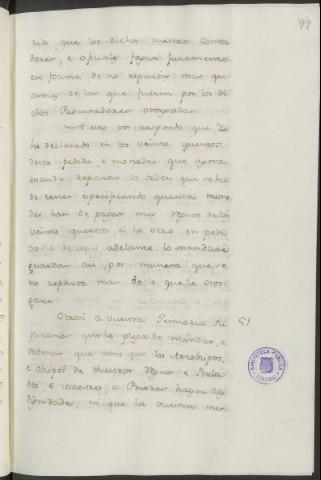 99
ria que los dichos vuestros Conta
dores, e oficiales fagan juramento
en forma de no reparar mas qu
antias de las que fueren por los di
chos Procuradores otorgadas.
A esto vos respondo que Yo
he declarado en los veinte quentos
deste pedido e monedas que agora
mande reparar la orden que se ha
de tener especificando quantas mone
das han de pagar mis Regnos de los
veinte quentos e lo otro en pedi
do e de aqui adelante lo mandare
guardar asi por manera que se
no reparta mas de lo que se otor
gare.
Otrosi a vuestra Sennoria su 51
plicamos que le plega de mandar, e
ordenar que ante que los Arzobispos,
e Obispos de vuestros Regnos e Perla
dos, e Maestres, e Priores hayan las
Dignidades, ni que la vuestra mer
BIBLIOTECA PUBLICA
TOLEDO